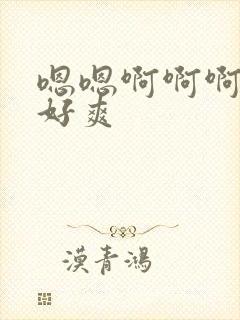 嗯嗯啊啊啊
好爽
漠青鴻